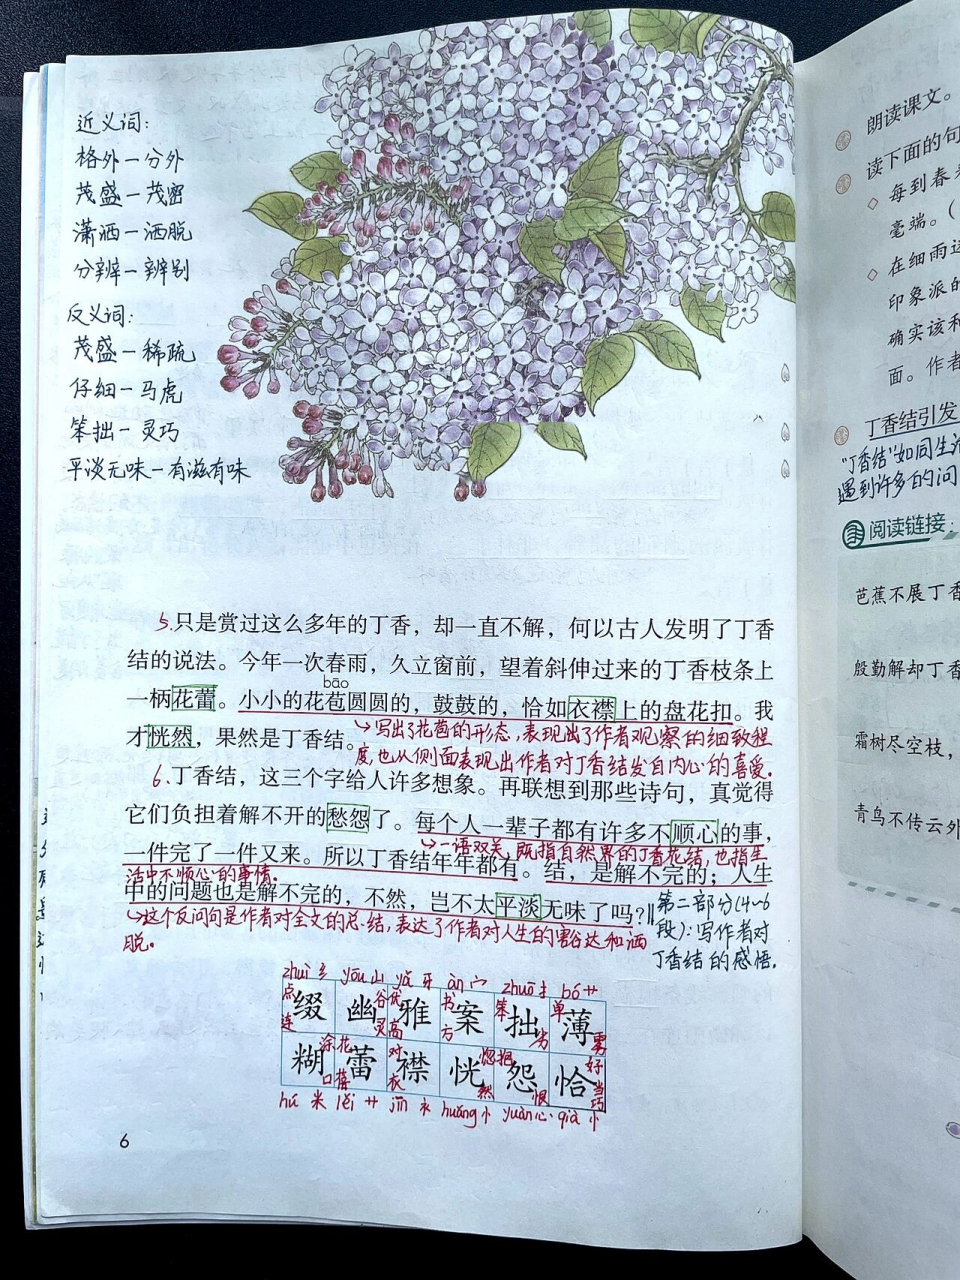 近义词:
格外—分外
茂盛—茂密
潇洒—洒脱
分辨—辨别
反义词:
茂盛—稀疏
仔细—马虎
笨拙—灵巧
平淡无味—有滋有味
5.只是赏过这么多年的丁香，却一直不解，何以古人发明了丁香
结的说法。今年一次春雨，久立窗前，望着斜伸过来的丁香枝条上
bāo
一柄花蕾。小小的花苞圆圆的，鼓鼓的，恰如衣襟上的盘花扣。我
才恍然，果然是丁香结。
写出了花苞的形态,表现出了作者观察的细致程
度,也从侧面表现出作者对丁香结发自内心的喜爱。
6.丁香结，这三个字给人许多想象。再联想到那些诗句，真觉得
它们负担着解不开的愁怨了。每个人一辈子都有许多不顺心的事，
一语双关,既指自然界的丁香花结,也指生
活中不顺心的事情。
一件完了一件又来。所以丁香结年年都有。结，是解不完的；人生
中的问题也是解不完的，不然，岂不太平淡无味了吗？
这个反问句是作者对全文的总结,表达了作者对人生的豁达和洒
脱。
第二部分(4~6
段):写作者对
丁香结的感悟.
zhuì 纟 yōu 山 yǎ 牙 àn 宀 zhuō 扌 bó 艹
缀 幽 雅 案 拙 薄
点连 谷灵 优高 书方 笨劣 单雾
糊 蕾 襟 恍 怨 恰
涂口 花蓓 对衣 惚然 抱恨 好当巧
hú 米 lěi 艹 jīn 衤 huǎng 忄 yuàn 心 qià 忄
6
朗读课文。
读下面的句
每到春
毫端。（
在细雨迷
印象派的
确实该和
面。作者
丁香结引发
"丁香结"如同生活
遇到许多的问
阅读链接:
芭蕉不展丁香
殷勤解却丁香
霜树尽空枝，
青鸟不传云外